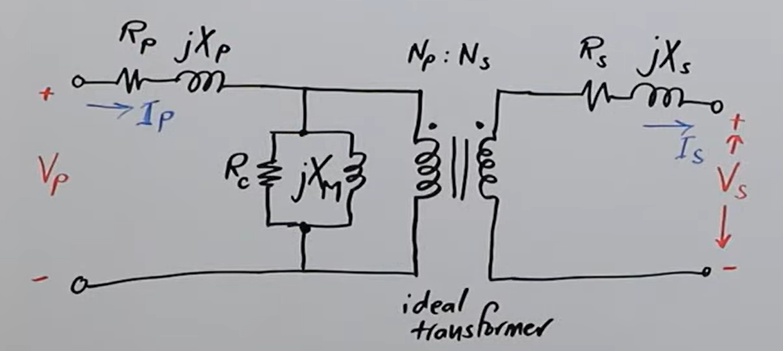 Rp jXp
Np : Ns
Rs jXs
+
Ip
Vp
-
Rc
jXM
+
Is
Vs
-
ideal
transformer